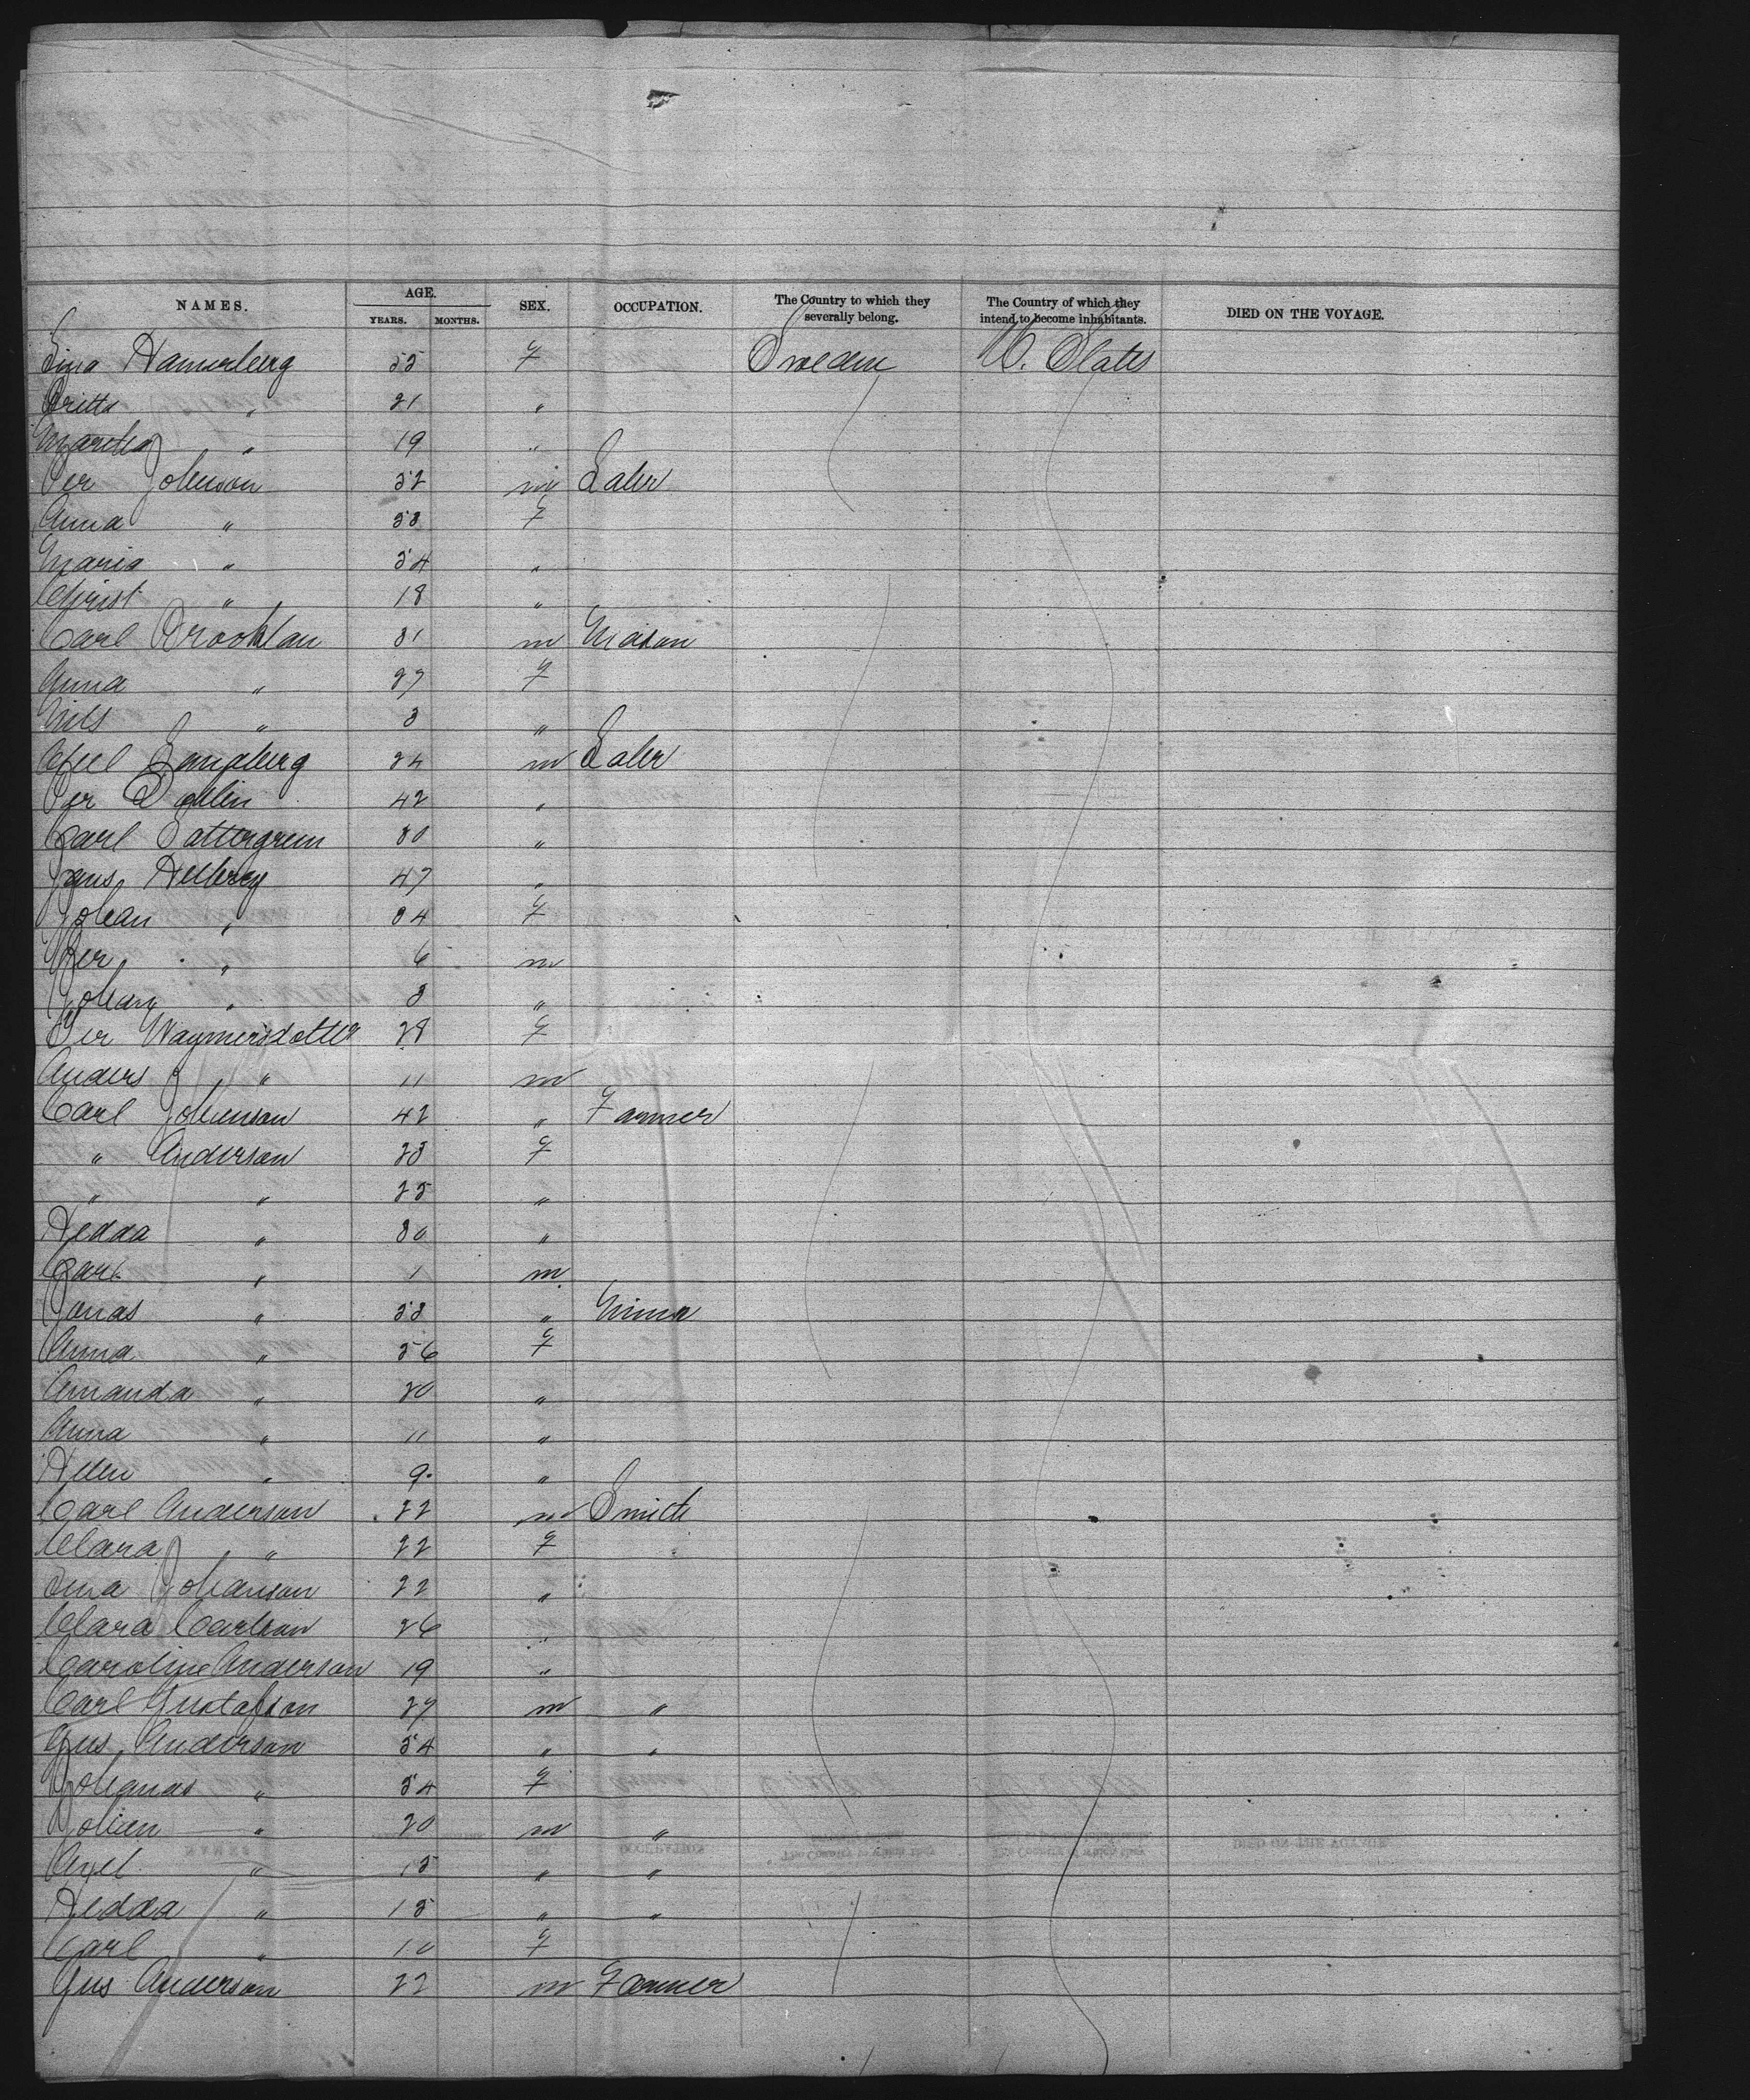 NAMES. AGE. YEARS. MONTHS. SEX. OCCUPATION. The Country to which they severally belong. The Country of which they intend to become inhabitants. DIED ON THE VOYAGE.
Hamerberg 55 F Sweden U. States
Britta " 21 "
Martha " 19 "
Per Johnson 52 m Labr
Anna " 53 F
Maria " 54 "
Christ " 18 "
Carl 31 m Mason
Anna " 27 F
Nils " 3 "
Axel 24 m Labr
Per 42 "
Carl 30 "
Jans Hellberg 47 "
Johan " 34 F
Per " 6 m
Johan " 3 "
Per 28 F
Anders " 11 m
Carl Johnson 42 " Farmer
" Anderson 23 F
" " 25 "
Hedda " 30 "
Carl " 1 m
Jonas " 53 " Miner
Anna " 56 F
Amanda " 20 "
Anna " 11 "
Helen " 9 "
Carl Anderson 22 m Smith
Clara " 22 F
Johanson 22 "
Clara Carlson 26 "
Caroline Anderson 19 "
Carl Gustafson 27 m "
Gus Anderson 54 " "
Johanas " 54 F
Johan " 20 m "
Axel " 15 " "
Hedda " 15 " "
Carl " 10 F
Gus Anderson 22 m Farmer